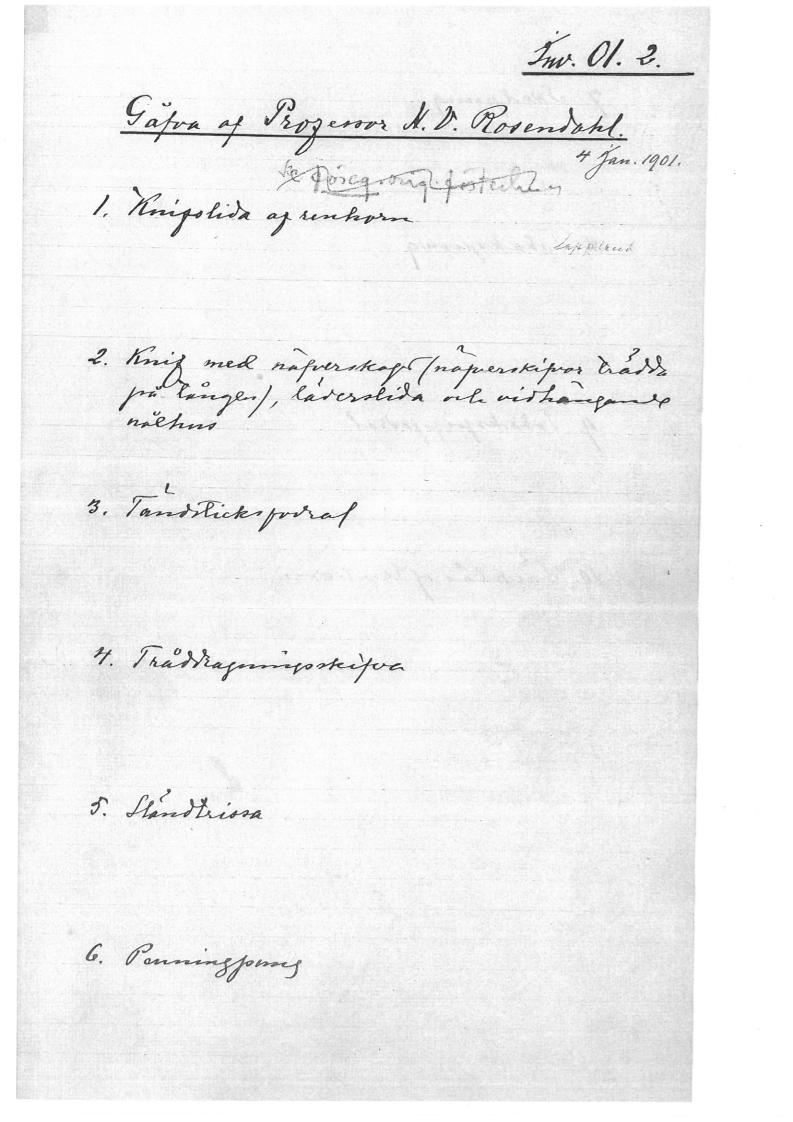 Inv. 01. 2.
Gåfva af Professor H. V. Rosendahl.
4 Jan. 1901.
1. Knifslida af renhorn
Lappland
2. Knif med näfverskaft (näfverskifvor trädda
på långes), läderslida och vidhängande
nålhus
3. Tändsticksfodral
4. Tråddragningsskifva
5. Sländtrissa
6. Penningpung